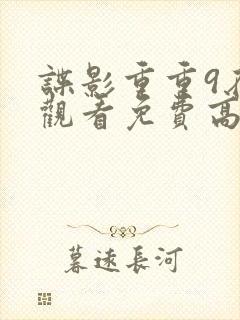 諜影重重9在
觀看免費高
暮遠長河